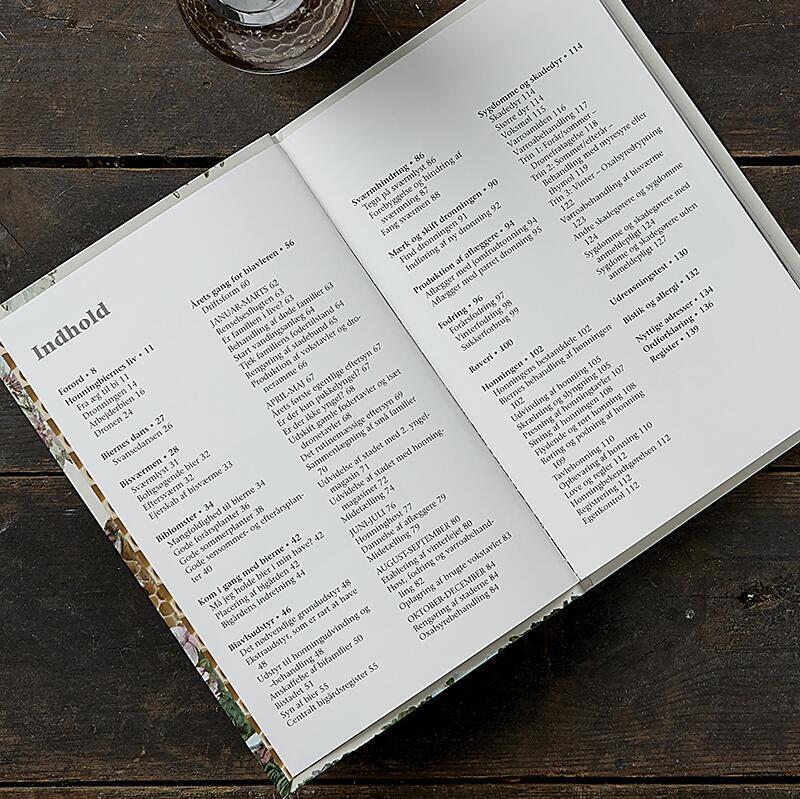 Indhold
Forord • 8
Honningbiernes liv • 11
Fra æg til bi 11
Dronningen 14
Arbejderbien 16
Dronen 24
Biernes dans • 27
Svansedansen 26
Bisværmen • 28
Sværmlyst 31
Boligsøgende bier 32
Eftersværm 32
Ejerskab af bisværme 33
Biblomster • 34
Mangfoldighed til bierne 34
Gode forårsplanter 36
Gode sommerplanter 38
Gode sensommer- og efterårsplan-
ter 40
Kom i gang med bierne • 42
Må jeg holde bier i min have? 42
Placering af bigården 42
Bigårdens indretning 44
Biavlsudstyr • 46
Det nødvendige grundudstyr 48
Ekstraudstyr, som er rart at have
48
Udstyr til honningudvinding og
–behandling 48
Anskaffelse af bifamilier 50
Bistadet 51
Syn af bier 55
Centralt bigårdsregister 55
Årets gang for biavleren • 56
Driftsform 60
JANUAR-MARTS 62
Renselsesflugten 63
Er familien i live? 63
Behandling af døde familier 63
Start vandingsanlæg 64
Tjek familiens foderilstand 64
Rengøring af stadebund 65
Produktion af vokstavler og dro-
neramme 66
APRIL-MAJ 67
Årets første egentlige eftersyn 67
Er der kun pukkelyngel? 67
Er der ikke yngel? 68
Udskift gamle fodertavler og isæt
dronetavler 68
Det rutinemæssige eftersyn 69
Sammenlægning af små familier
70
Udvidelse af stadet med 2. yngel-
magasin 71
Udvidelse af stadet med honning-
magasiner 72
Midetælling 74
JUNI-JULI 76
Honninghøst 77
Dannelse af aflæggere 79
Midetælling 79
AUGUST-SEPTEMBER 80
Etablering af vinterleje 80
Høst, fodring og varroabehand-
ling 82
Oplagring af brugte vokstavler 83
OKTOBER-DECEMBER 84
Rengøring af staderne 84
Oxalsyrebehandling 84
Sværmhindring • 86
Tegn på sværmlyst 86
Forebyggelse og hindring af
sværmning 87
Fang sværmen 88
Mærk og skift dronningen • 90
Find dronningen 91
Indføring af ny dronning 92
Produktion af aflæggere • 94
Aflægger med jomfrudronning 94
Aflægger med parret dronning 95
Fodring • 96
Forårsfodring 97
Vinterfodring 98
Sukkerforbrug 99
Røveri • 100
Honningen • 102
Honningens bestanddele 102
Biernes behandling af honningen
102
Udvinding af honning 105
Skrældning og slyngning 105
Presning af honningtavler 107
Sining af honning 108
Flydende og rørt honning 108
Røring og podning af honning
109
Tavlehonning 110
Opbevaring af honning 110
Love og regler 112
Honningbekendtgørelsen 112
Registrering 112
Egenkontrol 112
Sygdomme og skadedyr • 114
Skadedyr 114
Større dyr 114
Voksmøl 115
Varroamiden 116
Varroabehandling 117
Trin 1: Forår/sommer –
Dronefrasagelse 118
Trin 2: Sommer/efterår –
Behandling med myresyre eller
thymol 119
Trin 3: Vinter – Oxalsyredrypning
122
Varroabehandling af bisværme
123
Andre skadegørere og sygdomme
124
Sygdomme og skadegørere med
anmeldepligt 124
Sygdomme og skadegørere uden
anmeldepligt 127
Udrensningstest • 130
Bistik og allergi • 132
Nyttige adresser • 134
Ordforklaring • 136
Register • 139